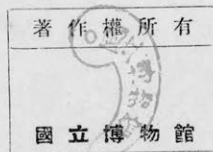 著作權所有
國立博物館